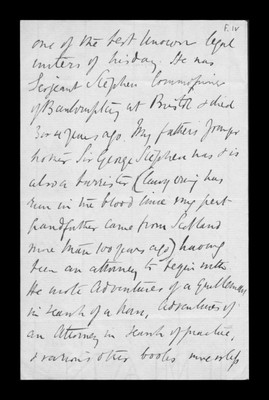 F. IV
one of the best known legal
writers of his day. He was
Serjeant Stephen Commissioner
of Bankruptcy at Bristol & died
3 or 4 years ago. My father's younger
brother Sir George Stephen was & is
also a barrister (lawyering has
run in the blood since my great
grandfather came from Scotland
more than 100 years ago) having
been an attorney to begin with
He wrote Adventures of a Gentleman
in search of a horse, Adventures of
an Attorney in search of practice,
& various other books more or less